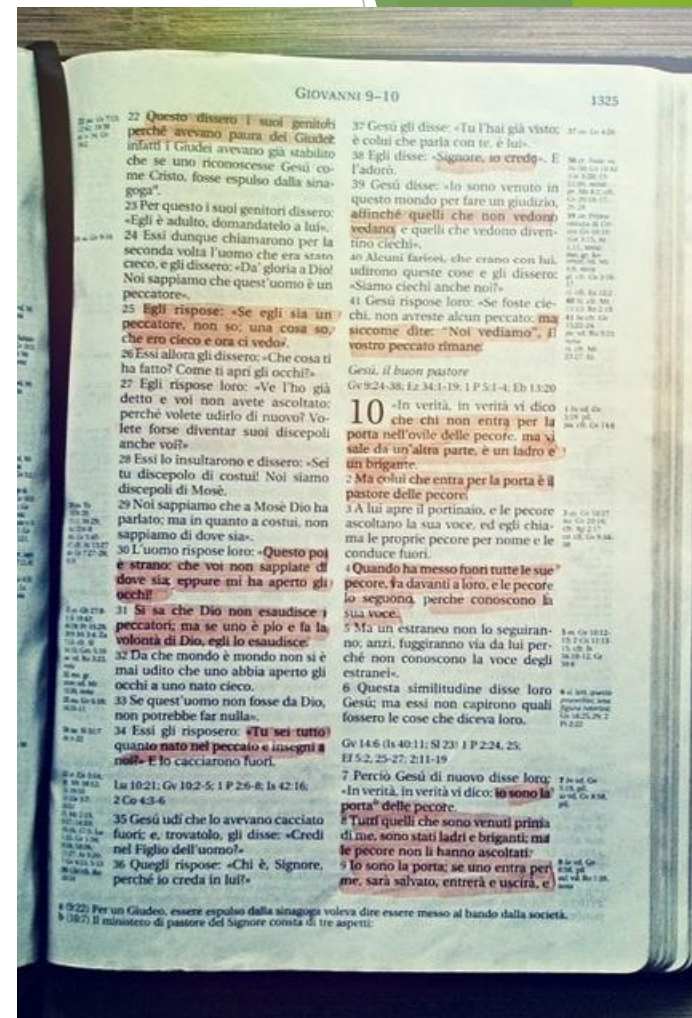 GIOVANNI 9–10
1325
22 Questo dissero i suoi genitori
perché avevano paura dei Giudei;
infatti i Giudei avevano già stabilito
che se uno riconoscesse Gesú co-
me Cristo, fosse espulso dalla sina-
goga a.
23 Per questo i suoi genitori dissero:
«Egli è adulto, domandatelo a lui».
24 Essi dunque chiamarono per la
seconda volta l'uomo che era stato
cieco, e gli dissero: «Da' gloria a Dio!
Noi sappiamo che quest'uomo è un
peccatore».
25 Egli rispose: «Se egli sia un
peccatore, non so; una cosa so,
che ero cieco e ora ci vedo».
26 Essi allora gli dissero: «Che cosa ti
ha fatto? Come ti aprì gli occhi?»
27 Egli rispose loro: «Ve l'ho già
detto e voi non avete ascoltato;
perché volete udirlo di nuovo? Vo-
lete forse diventar suoi discepoli
anche voi?»
28 Essi lo insultarono e dissero: «Sei
tu discepolo di costui! Noi siamo
discepoli di Mosè.
29 Noi sappiamo che a Mosè Dio ha
parlato; ma in quanto a costui, non
sappiamo di dove sia».
30 L'uomo rispose loro: «Questo poi
è strano: che voi non sappiate di
dove sia, eppure mi ha aperto gli
occhi!
31 Si sa che Dio non esaudisce i
peccatori; ma se uno è pio e fa la
volontà di Dio, egli lo esaudisce.
32 Da che mondo è mondo non si è
mai udito che uno abbia aperto gli
occhi a uno nato cieco.
33 Se quest'uomo non fosse da Dio,
non potrebbe far nulla».
34 Essi gli risposero: «Tu sei tutto
quanto nato nel peccato e insegni a
noi?» E lo cacciarono fuori.
Lu 10:21; Gv 10:2-5; 1 P 2:6-8; Is 42:16;
2 Co 4:3-6
35 Gesú udì che lo avevano cacciato
fuori; e, trovatolo, gli disse: «Credi
nel Figlio dell'uomo?»
36 Quegli rispose: «Chi è, Signore,
perché io creda in lui?»
37 Gesú gli disse: «Tu l'hai già visto;
è colui che parla con te, è lui».
38 Egli disse: «Signore, io credo». E
l'adorò.
39 Gesú disse: «Io sono venuto in
questo mondo per fare un giudizio,
affinché quelli che non vedono
vedano, e quelli che vedono diven-
tino ciechi».
40 Alcuni farisei, che erano con lui,
udirono queste cose e gli dissero:
«Siamo ciechi anche noi?»
41 Gesú rispose loro: «Se foste cie-
chi, non avreste alcun peccato; ma
siccome dite: "Noi vediamo", il
vostro peccato rimane.
Gesú, il buon pastore
Gv 9:24-38; Ez 34:1-19; 1 P 5:1-4; Eb 13:20
10 «In verità, in verità vi dico
che chi non entra per la
porta nell'ovile delle pecore, ma vi
sale da un'altra parte, è un ladro e
un brigante.
2 Ma colui che entra per la porta è il
pastore delle pecore.
3 A lui apre il portinaio, e le pecore
ascoltano la sua voce, ed egli chia-
ma le proprie pecore per nome e le
conduce fuori.
4 Quando ha messo fuori tutte le sue
pecore, va davanti a loro, e le pecore
lo seguono, perché conoscono la
sua voce.
5 Ma un estraneo non lo seguiran-
no; anzi, fuggiranno via da lui per-
ché non conoscono la voce degli
estranei».
6 Questa similitudine disse loro
Gesú; ma essi non capirono quali
fossero le cose che diceva loro.
Gv 14:6 (Is 40:11; Sl 23) 1 P 2:24, 25;
Ef 5:2, 25-27; 2:11-19
7 Perciò Gesú di nuovo disse loro:
«In verità, in verità vi dico: io sono la
porta b delle pecore.
8 Tutti quelli che sono venuti prima
di me, sono stati ladri e briganti; ma
le pecore non li hanno ascoltati.
9 Io sono la porta; se uno entra per
me, sarà salvato, entrerà e uscirà, e
a (9:22) Per un Giudeo, essere espulso dalla sinagoga voleva dire essere messo al bando dalla società.
b (10:7) Il ministero di pastore del Signore consta di tre aspetti: